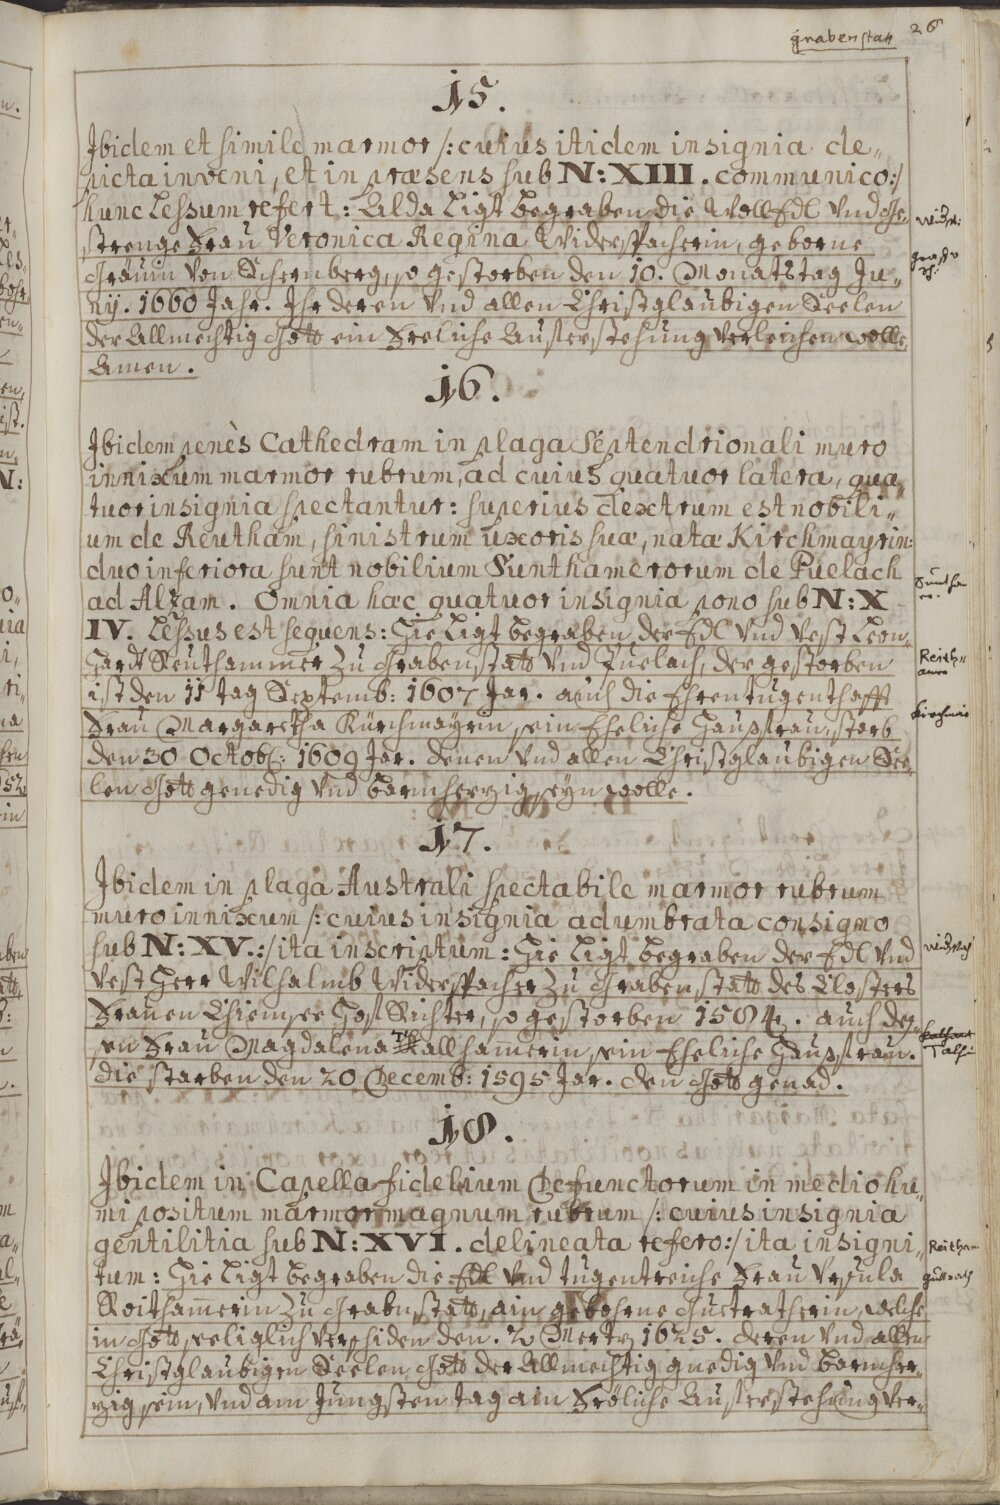 grabenstatt 26
15.
Ibidem et simile marmor /: cuius itidem insignia de„
picta inveni, et in præsens sub N: XIII. communico:/
hunc Lessum refert.: Alda Ligt begraben die WollEdl Vnd Ge„
strenge Frau Veronica Regina Widerspacherin, geborne
Gräuin Von Schernberg, so gestorben den 10. Monatstag Ju„
nÿ. 1660 Jahr. Ihr deren Vnd allen Christglaubigen Seelen
der Allmechtig Gott ein Freliche Aufferstehung Verleichen wolle
Amen.
16.
Ibidem penès Cathedram in plaga Septendrionali muro
innixum marmor rubrum, ad cuius quatuor latera, qua„
tuor insignia spectantur: superius dextrum est nobili„
um de Reutham, sinistrum uxoris suæ, natæ Kirchmayrin:
duo inferiora sunt nobilium Sunthamerorum de Puelach
ad Alzam. Omnia hæc quatuor insignia pono sub N: X
IV. Lessus est sequens: Hie Ligt begraben der Edl Vnd Vest Leon„
Hardt Reuthammer Zu Grabenstatt Vnd Puelach, der gestorben
ist den 11 tag Septemb: 1607 Jar. auch die Ehrentugenthafft
Frau Margaretha Kürchmaÿrin sein Eheliche Haußfrau, starb
den 30 Octob: 1609 Jar. denen Vnd allen Christglaubigen See„
len Gott genedig Vnd barmherzig seÿn wolle.
17.
Ibidem in plaga Australi spectabile marmor rubrum
muro innixum /: cuius insignia adumbrata consigno
sub N: XV.:/ ita inscriptum: Hie Ligt begraben der Edl Vnd
Vest Herr Wilhalmb Widerspacher Zu Grabenstatt des Closters
Frauen Chiemsee Hofrichter, so gestorben 1584. auch des„
sen Frau Magdalena Thallhamerin, sein Eheliche Haußfrau.
die starben den 20 Decemb: 1595 Jar. den Gott genad.
18.
Ibidem in Capella fidelium Defunctorum in medio hu„
mi positum marmor magnum rubrum /: cuius insignia
gentilitia sub N: XVI. delineata refero:/ ita insigni„
tum: Hie Ligt begraben die Edl Vnd tugentreiche Frau Vrsula
Roithamerin Zu Grabnstatt, ain gebohrne Guetratherin, welche
in Gott seliglich Verschiden den. 2 Mertz 1625. deren Vnd allen
Christglaubigen Seelen Gott der Allmechtig gnedig Vnd barmher„
zig sein, Vnd am Jungsten tag ain Fröliche Aufferstehung Ver„
Reitham
guttrath